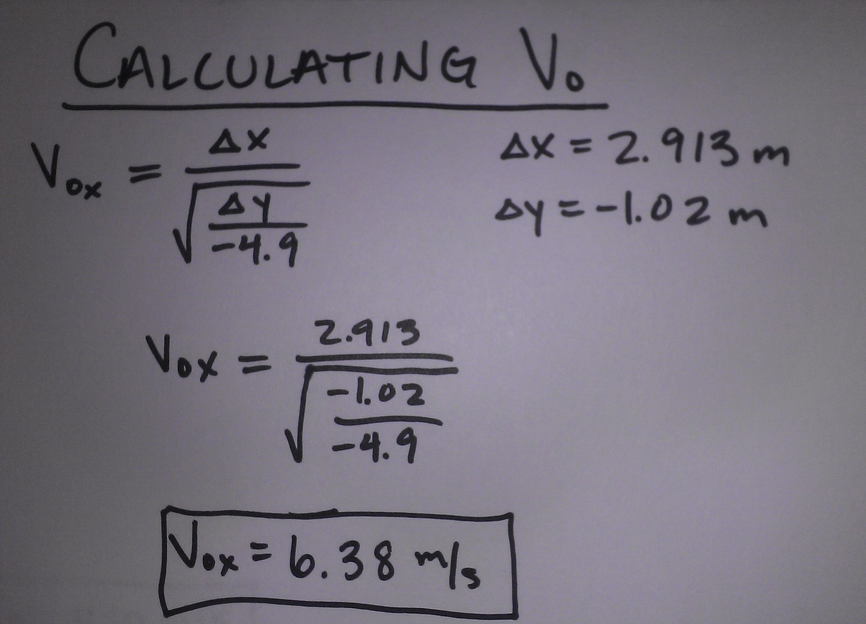 CALCULATING V₀
V₀ₓ = Δx / √(Δy / -4.9)
Δx = 2.913 m
Δy = -1.02 m
V₀ₓ = 2.913 / √(-1.02 / -4.9)
V₀ₓ = 6.38 m/s